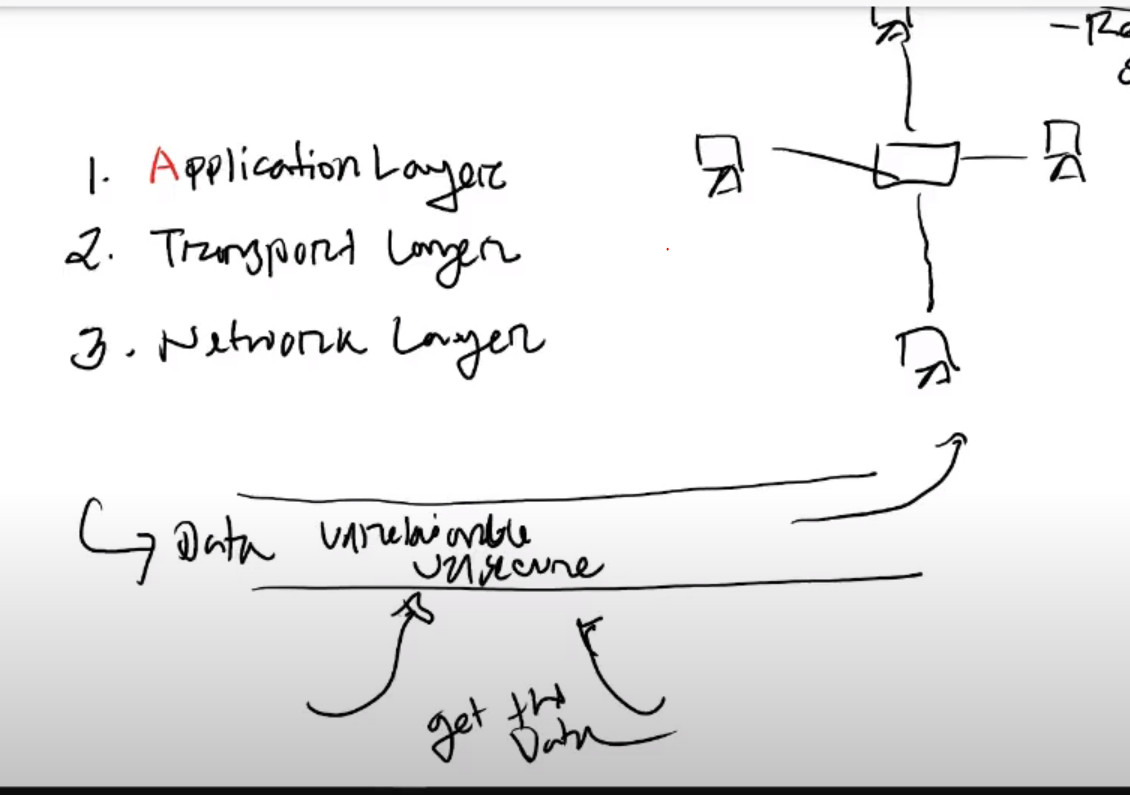 - Re
1. Application Layer
2. Transport Layer
3. Network Layer
Data unreliable
unsecure
get the
Data